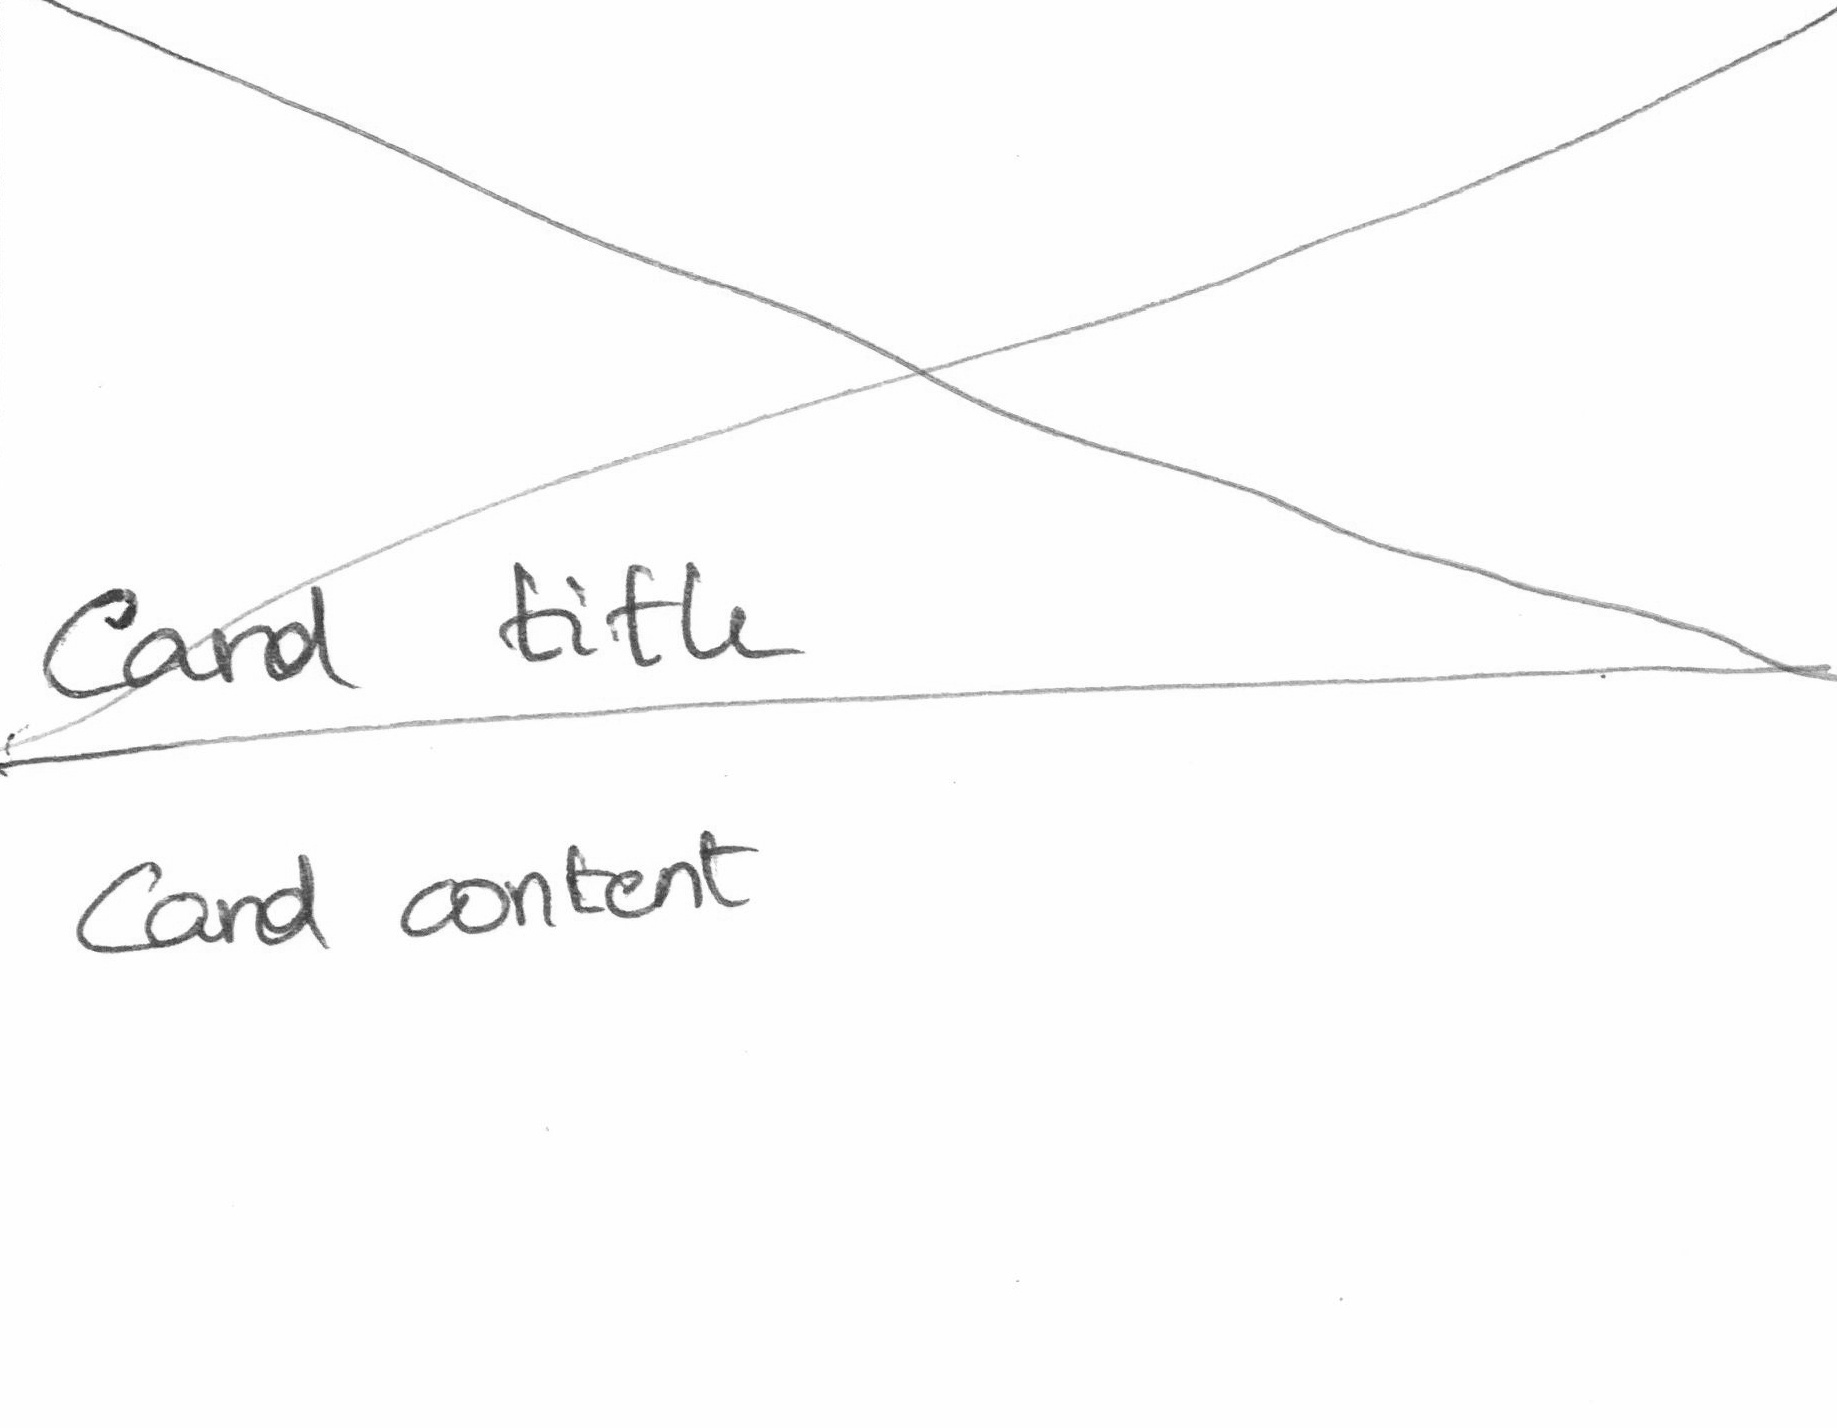 Card title
Card content